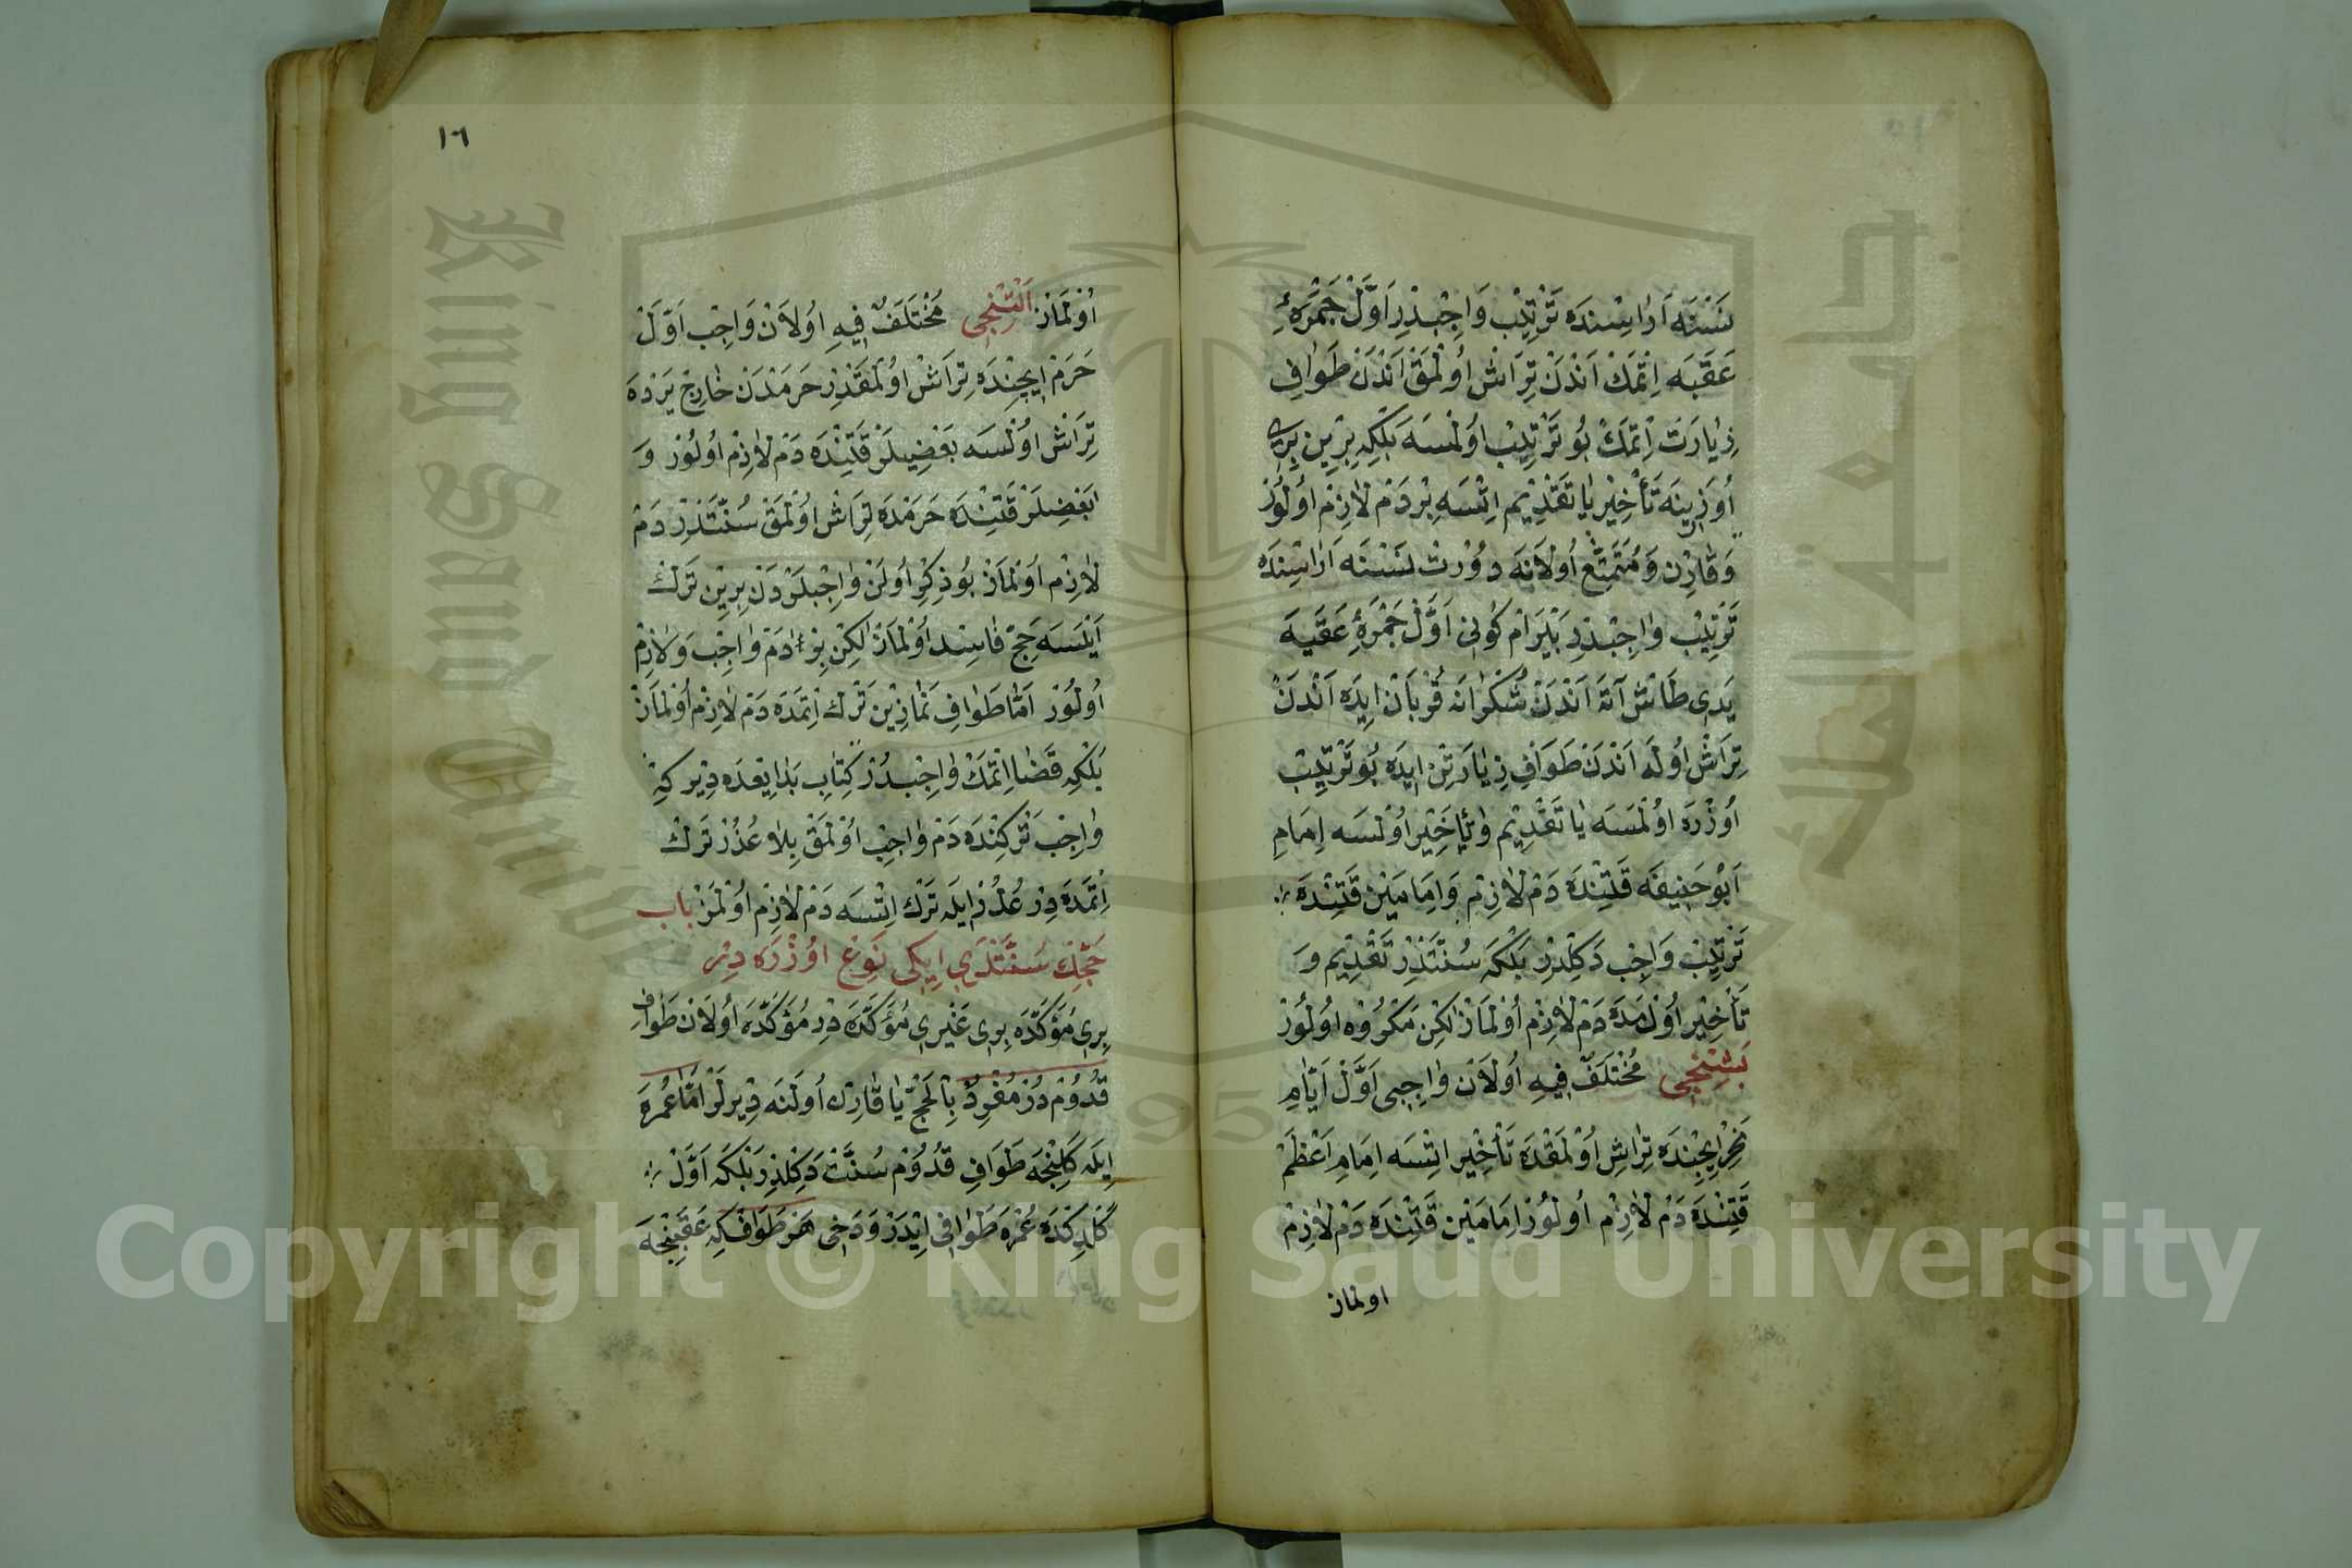 نَسْنَه اَرٰاسِنْدَه تَرْتِيبْ وَاجِبْدِر اَوَّلْ جَمْرَۀِ
عَقَبَه اِتْمَكْ اَنْدَنْ تِرَاشْ اُولْمَقْ اَنْدَنْ طَوٰافِ
زِيٰارَتْ اِتْمَكْ بُو تَرْتِيبْ اُولْمَسَه بَلْكِه بِرِينْ بِرِى
اُوزَرِينَه تَأْخِيْر يٰا تَقْدِيْم اِتْسَه بِرْ دَمْ لَازِمْ اُولُورْ
وَقَارِنْ وَمُتَمَتِّعْ اُولَانَه دُورْتْ نَسْنَه اَرٰاسِنْدَه
تَرْتِيبْ وٰاجِبْدِر بَيْرَامْ كُونِى اَوَّلْ جَمْرَۀِ عَقَبَه
يَدِى طَاشْ آتَه اَنْدَنْ شُكْرٰانَه قُرْبَانْ اِيدَه اَنْدَنْ
تِرَاشْ اُولَه اَنْدَنْ طَوَافِ زِيٰارَتِنْ اِيدَه بُو تَرْتِيبْ
اُوزْرَه اُولْمَسَه يٰا تَقْدِيْم وٰيٰا تَأْخِيْر اُولْسَه اِمَامِ
اَبُو حَنِيفَه قَتِنْدَه دَمْ لٰازِمْ وَاِمَامَيْنْ قَتِنْدَه
تَرْتِيبْ وَاجِبْ دَكِلْدِرْ بَلْكَه سُنَّتْدِرْ تَقْدِيْم وَ
تَأْخِيْر اُولْمَدَه دَمْ لَازِمْ اُولْمَازْ لٰكِنْ مَكْرُوه اُولُورْ
بَشِنْجِى مُخْتَلَفٌ فِيهِ اُولَانْ وٰاجِبِى اَوَّلْ اَيَّامِ
نَحْرْ اِيچِنْدَه تِرٰاشِ اُولْمَقْدَه تَأْخِيْر اِتْسَه اِمَامِ اَعْظَمْ
قَتِنْدَه دَمْ لٰازِمْ اُولُورْ اِمَامَيْن قَتِنْدَه دَمْ لٰازِمْ
اولماز
١٦
اُولْمَازْ اَلْتِنْجِى مُخْتَلَفٌ فِيهِ اُولَانْ وَاجِبْ اَوَّلْ
حَرَمْ اِيچِنْدَه تِرَاشْ اُولْمَقْدِرْ حَرَمْدَنْ خٰارِجْ يَرْدَه
تِرَاشْ اُولْسَه بَعْضِيلَرْ قَتِنْدَه دَمْ لٰازِمْ اُولُورْ وَ
بَعْضِيلَرْ قَتِنْدَه حَرَمْدَه تِرَاشْ اُولْمَقْ سُنَّتْدِرْ دَمْ
لٰازِمْ اُولْمَازْ بُو ذِكْر اُولَنْ وٰاجِبْلَرْدَنْ بِرِينْ تَرْكْ
اَيْلَسَه حَجّ فٰاسِدْ اُولْمَازْ لٰكِنْ دَمْ وٰاجِبْ وَلَازِمْ
اُولُورْ اَمَّا طَوٰافِ نَمٰازِيْن تَرْك اِتْمَدَه دَمْ لٰازِمْ اُولْمَازْ
بَلْكِه قَضٰا اِتْمَكْ وٰاجِبْدُرْ كِتٰابِ بَدٰايِعْدَه دِيْر كِه
وٰاجِبْ تَرْكِنْدَه دَمْ وٰاجِبْ اُولْمَقْ بِلَا عُذْرْ تَرْك
اِتْمَدَه دِرْ عُذْر اِيلَه تَرْك اِتْسَه دَمْ لَازِمْ اُولْمَزْ باب
حَجِّكْ سُنَّتْلَرِى اِيكِى نَوْعْ اُوزْرَه دِرْ
بِرِى مُؤَكَّدَه بِرِى غَيْرِى مُؤَكَّدَه دِرْ مُؤَكَّدَه اُولَانْ طَوَافِ
قُدُومْ دُرْ مُفْرِدْ بِالْحَجّ يٰا قٰارِنْ اُولَنَه دِيْرلَرْ اَمّٰا عُمْرَه
اِيلَه كَلِنْجَه طَوَافِ قُدُومْ سُنَّتْ دَكِلْدِرْ بَلْكَه اَوَّلْ
كَلْدِكْدَه عُمْرَه طَوٰافِى اِيْدَرْ وَدَخِى هَرْ طَوَافْكِه عَقِبِنْجَه
Copyright © King Saud University
King Saud University
جامعة الملك سعود
1957